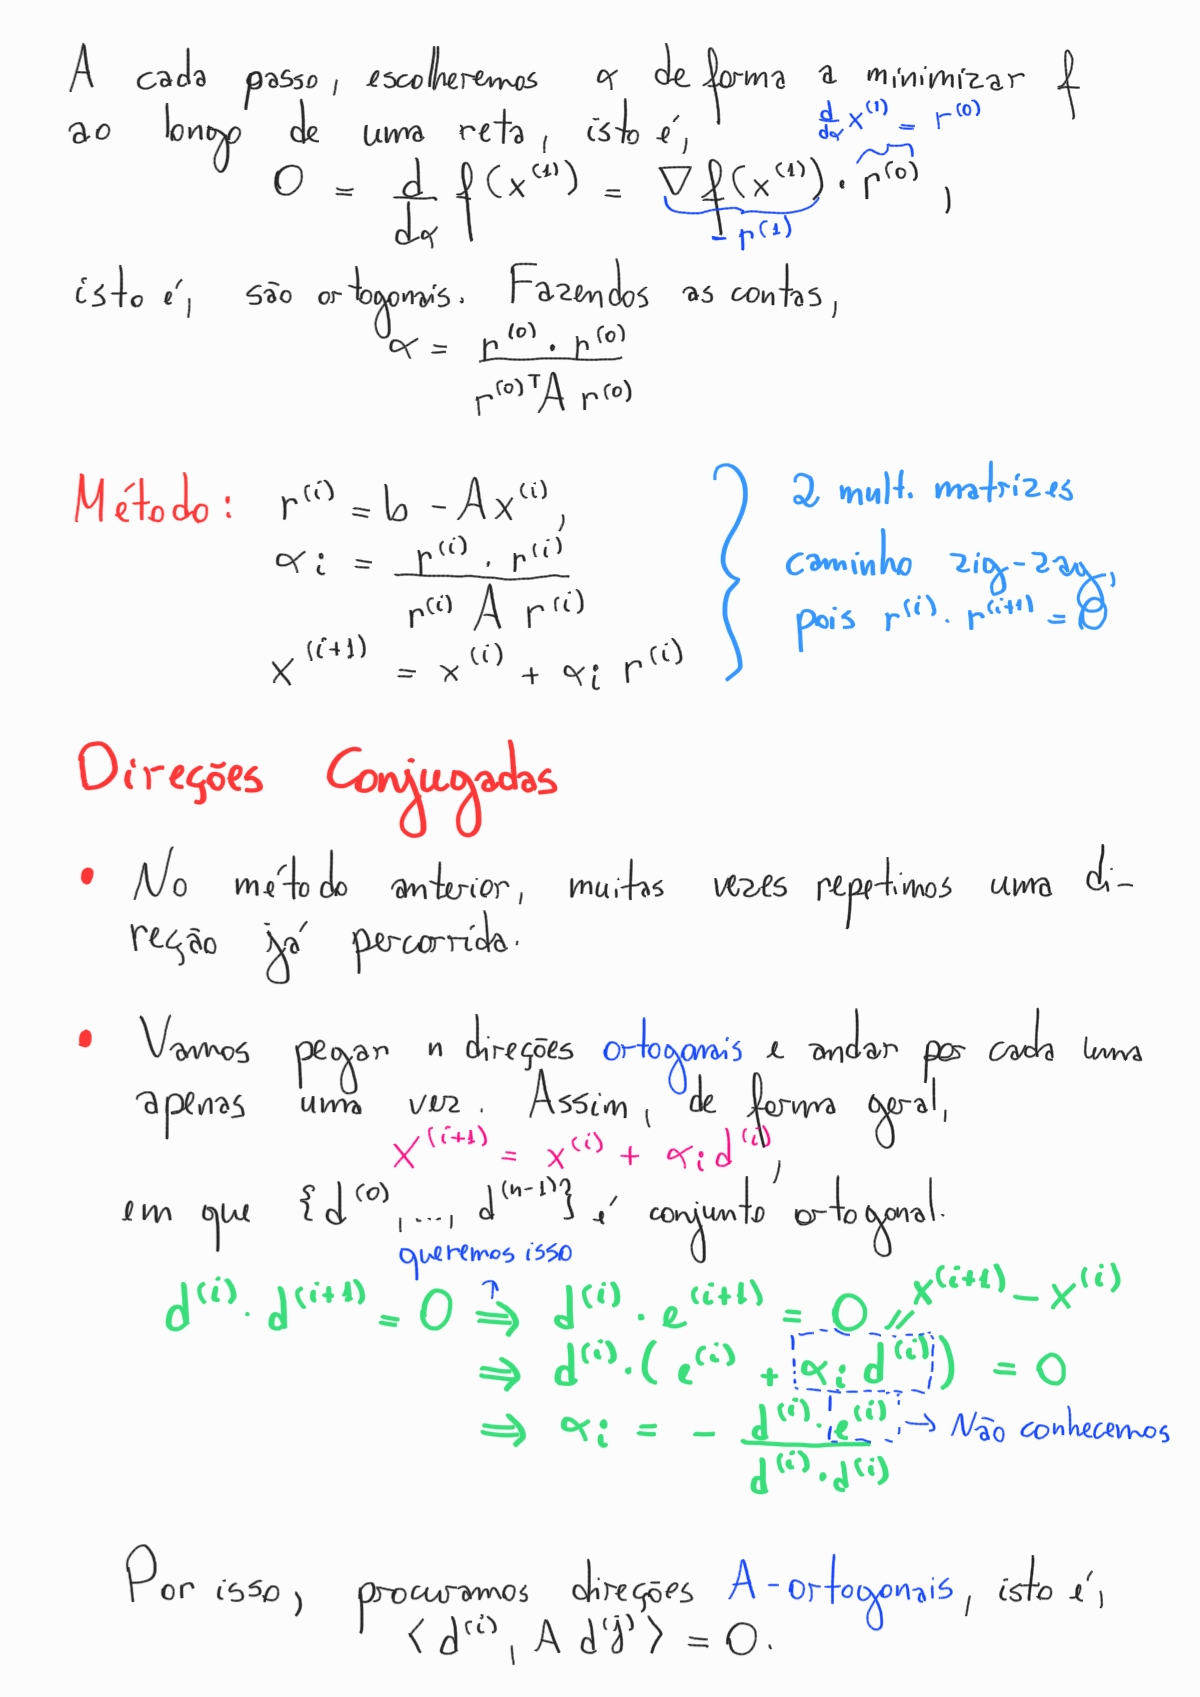 A cada passo, escolheremos α de forma a minimizar f
ao longo de uma reta, isto é,
d/dα x⁽¹⁾ = r⁽⁰⁾
0 = d/dα f(x⁽¹⁾) = ∇f(x⁽¹⁾) · r⁽⁰⁾,
- r⁽¹⁾
isto é, são ortogonais. Fazendos as contas,
α = r⁽⁰⁾ · r⁽⁰⁾ / r⁽⁰⁾ᵀ A r⁽⁰⁾
Método: r⁽ⁱ⁾ = b - Ax⁽ⁱ⁾,
αi = r⁽ⁱ⁾ · r⁽ⁱ⁾ / r⁽ⁱ⁾ A r⁽ⁱ⁾
x⁽ⁱ⁺¹⁾ = x⁽ⁱ⁾ + αi r⁽ⁱ⁾
2 mult. matrizes
caminho zig-zag,
pois r⁽ⁱ⁾ · r⁽ⁱ⁺¹⁾ = 0
Direções Conjugadas
• No método anterior, muitas vezes repetimos uma di-
reção já percorrida.
• Vamos pegar n direções ortogonais e andar por cada uma
apenas uma vez. Assim, de forma geral,
x⁽ⁱ⁺¹⁾ = x⁽ⁱ⁾ + αi d⁽ⁱ⁾,
em que {d⁽⁰⁾, ..., d⁽ⁿ⁻¹⁾} é conjunto ortogonal.
queremos isso
↑
d⁽ⁱ⁾ · d⁽ⁱ⁺¹⁾ = 0 ⇒ d⁽ⁱ⁾ · e⁽ⁱ⁺¹⁾ = 0 x⁽ⁱ⁺¹⁾ - x⁽ⁱ⁾
⇒ d⁽ⁱ⁾ · (e⁽ⁱ⁾ + αi d⁽ⁱ⁾) = 0
⇒ αi = - d⁽ⁱ⁾ · e⁽ⁱ⁾ / d⁽ⁱ⁾ · d⁽ⁱ⁾ → Não conhecemos
Por isso, procuramos direções A-ortogonais, isto é,
⟨d⁽ⁱ⁾, A d⁽ʲ⁾⟩ = 0.